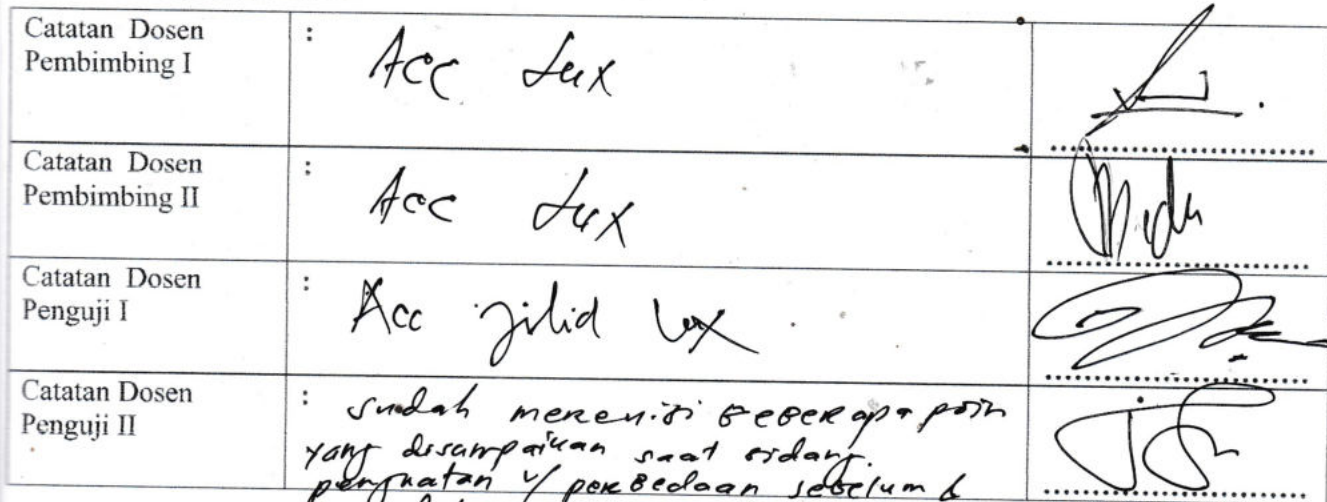 Catatan Dosen
Pembimbing I
: Acc Lux
Catatan Dosen
Pembimbing II
: Acc Lux
Catatan Dosen
Penguji I
: Acc jilid Lux
Catatan Dosen
Penguji II
: sudah merevisi beberapa poin
yang disampaikan saat sidang.
penguatan u/ perbedaan sebelum &